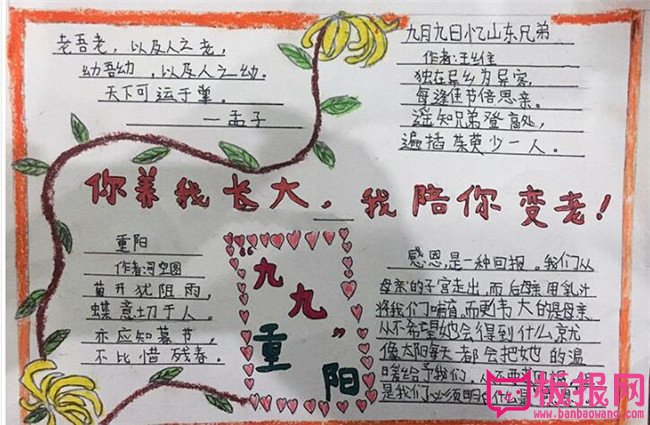 老吾老，以及人之老，
幼吾幼，以及人之幼。
天下可运于掌。
—孟子
九月九日忆山东兄弟
作者:王维
独在异乡为异客，
每逢佳节倍思亲。
遥知兄弟登高处，
遍插茱萸少一人。
你养我长大，我陪你变老！
重阳
作者:司空图
菊开犹阻雨，
蝶意切于人。
亦应知暮节，
不比惜残春。
“九九”
重阳
感恩，是一种回报。我们从
母亲的子宫走出，而后母亲用乳汁
将我们哺育，而更伟大的是母亲
从不希望她会得到什么。就
像太阳每天都会把她的温
暖给予我们，
是我们必须明白
板报网
www.banbaowang.com